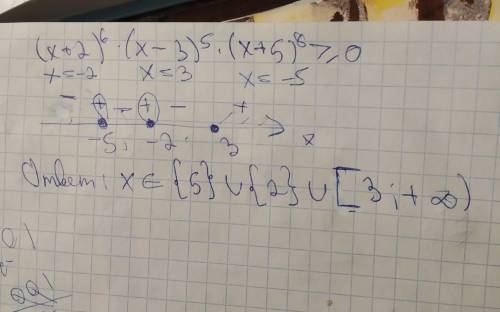 (x+2)⁶ · (x-3)⁵ · (x+5)⁸ ≥ 0
x=-2 x=3 x=-5
- + - + - +
-5; -2 3 x
Ответ: x ∈ {5} ∪ {2} ∪ [3; +∞)